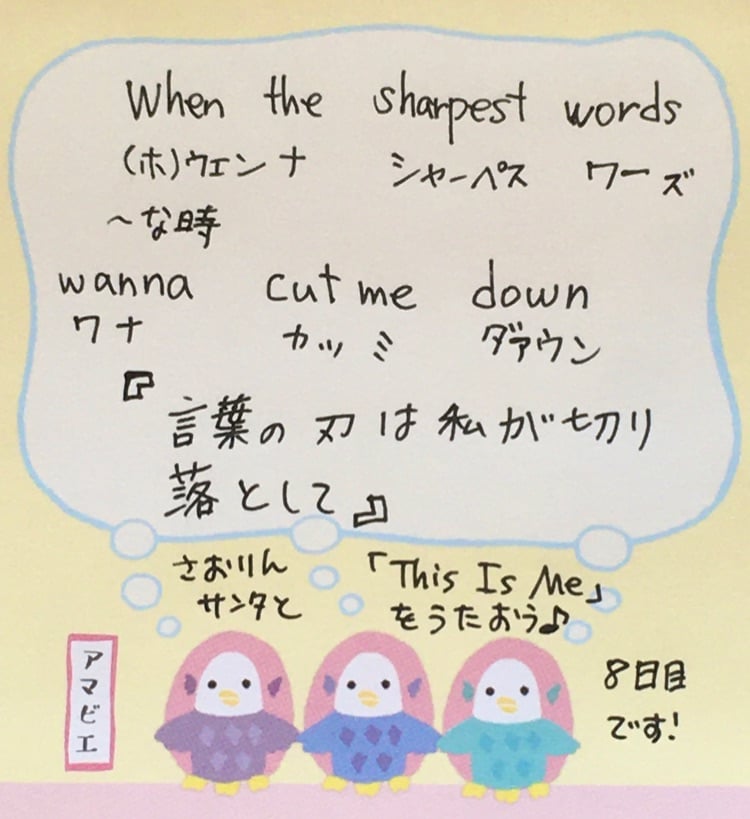 When the sharpest words
(ホ)ウェンナ シャーペス ワーズ
〜な時
wanna cut me down
ワナ カッミ ダァウン
『言葉の刃は私が切り
落として』
さおりん
サンタと
「This Is Me」
をうたおう♪
アマビエ
8日目
です!